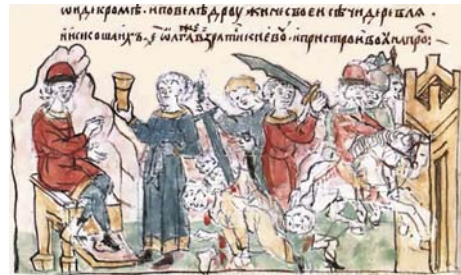 ѿиде кромѣ · и повелѣ дроужинѣ своеи сѣчи деревлѧ ·
исѣкоша ихъ · ҂е ѡлга киевоу · и пристрои вои на про:~